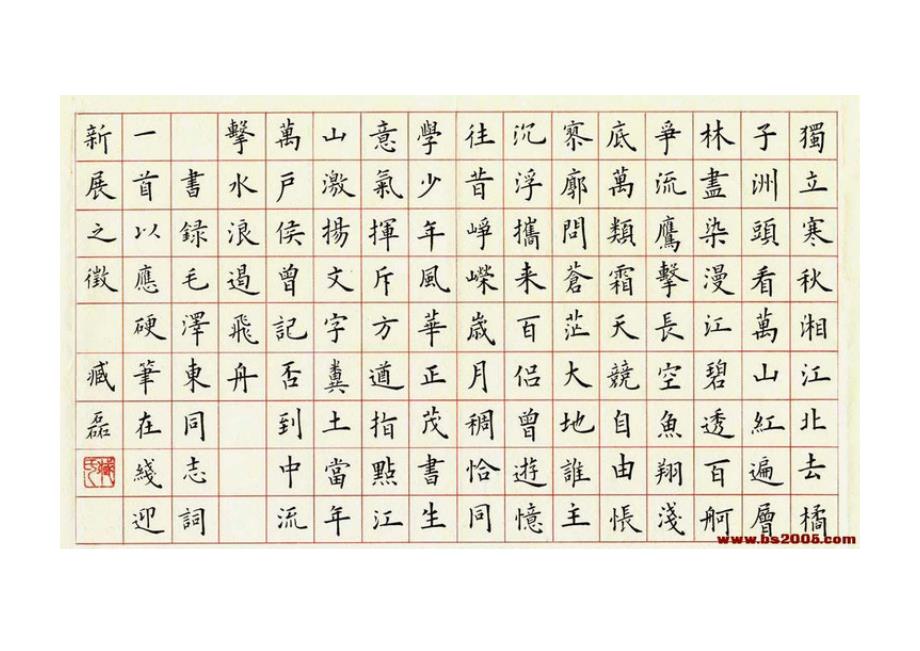 獨立寒秋湘江北去橘
子洲頭看萬山紅遍層
林盡染漫江碧透百舸
爭流鷹擊長空魚翔淺
底萬類霜天競自由悵
寥廓問蒼茫大地誰主
沉浮攜来百侣曾遊憶
往昔崢嶸歲月稠恰同
學少年風華正茂書生
意氣揮斥方遒指點江
山激揚文字糞土當年
萬戶侯曾記否到中流
擊水浪遏飛舟
書録毛澤東同志詞
一首以應硬筆在綫迎
新展之徵 臧磊
www.bs2005.com